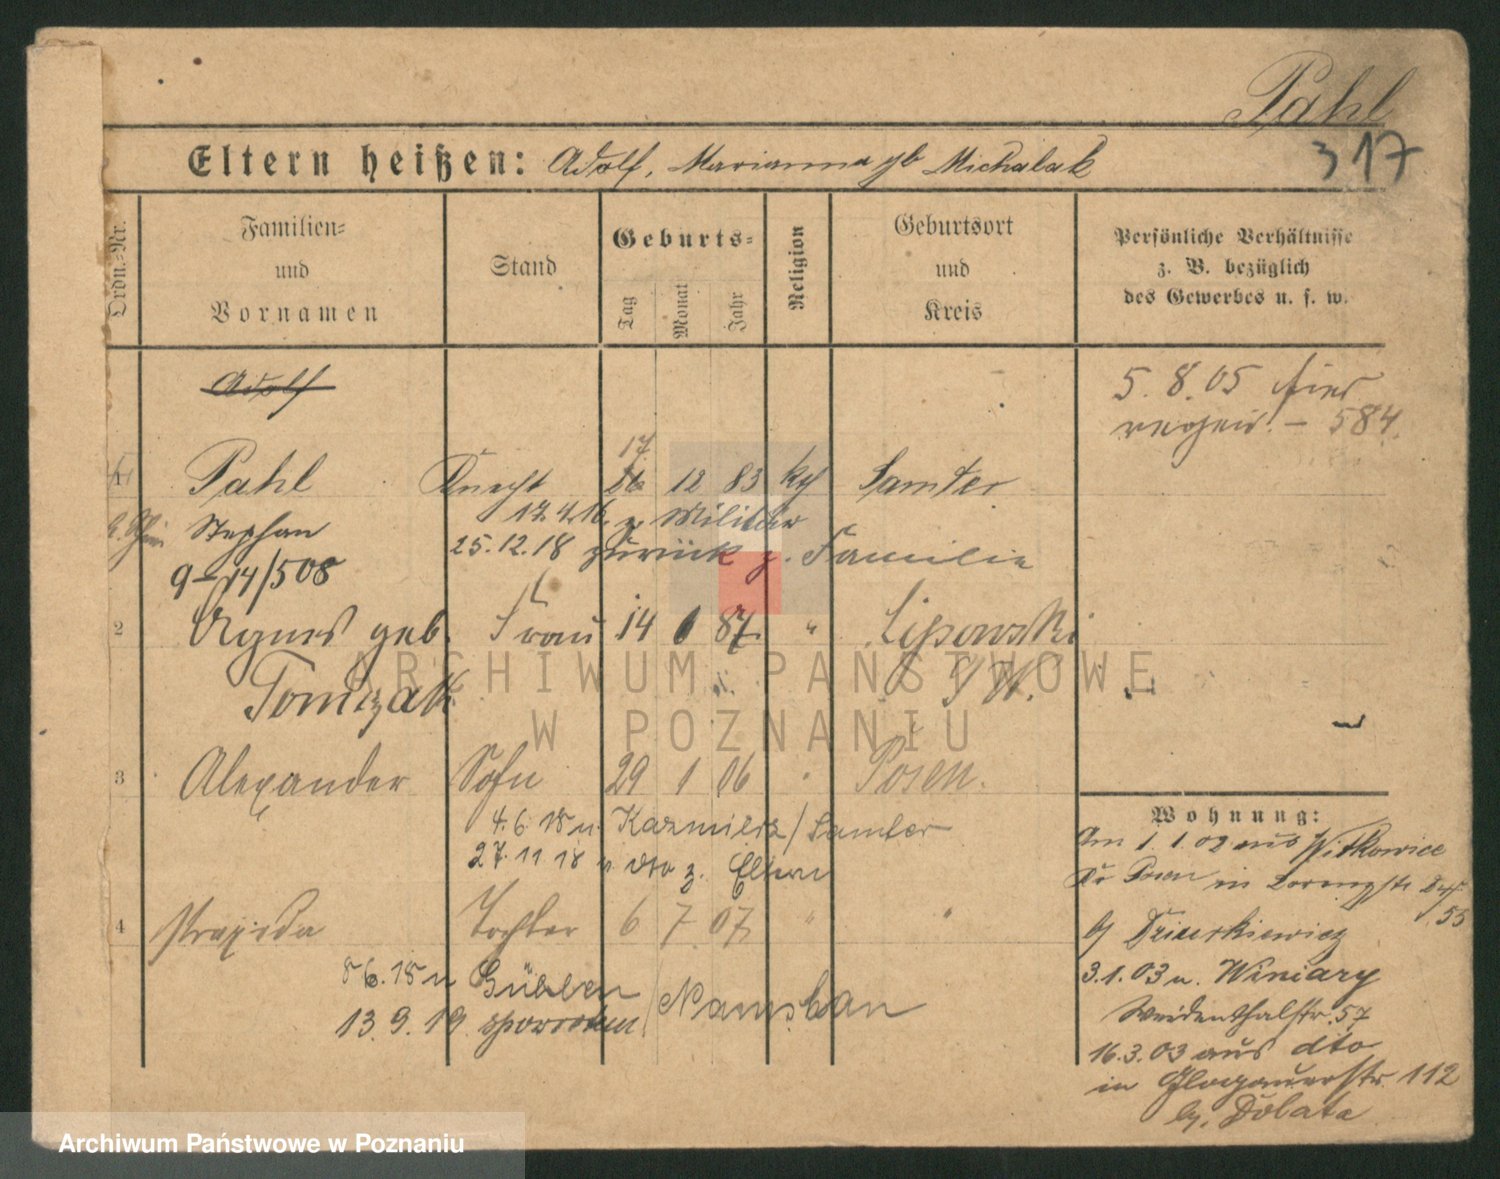 Pahl
317
Eltern heißen: Adolf, Marianna gb Michalak
Ordn.-Nr.
Familien- und Vornamen
Stand
Geburts-
Tag
Monat
Jahr
Religion
Geburtsort und Kreis
Persönliche Verhältnisse
z. B. bezüglich
des Gewerbes u. s. w.
Adolf
5.8.05
584
17
1 Pahl Knecht 26 12 83 kg Samter
Stephan 17.4.16 z. Militär
25.12.18 zurück z. Familie
9-14/508
2 Agnes geb. Frau 14 1 87 " Lipowski
Tomczak
3 Alexander Sohn 29 1 06 Posen.
4.6.18 n. Kazmierz / Samter
27.11.18 v dto z. Eltern
4 Praxeda Tochter 6 7 07 " "
8 6.18 n / Namslau
13.9.19
Wohnung:
Am 1.1.02 aus Witkowice
Kr Posen in
55
b/ Dzierkiewicz
3.1.03 n. Winiary
Weidenthalstr. 57
16.3.03 aus dto
in Glogauerstr. 112
b/. Dolata
ARCHIWUM PAŃSTWOWE
W POZNANIU
Archiwum Państwowe w Poznaniu